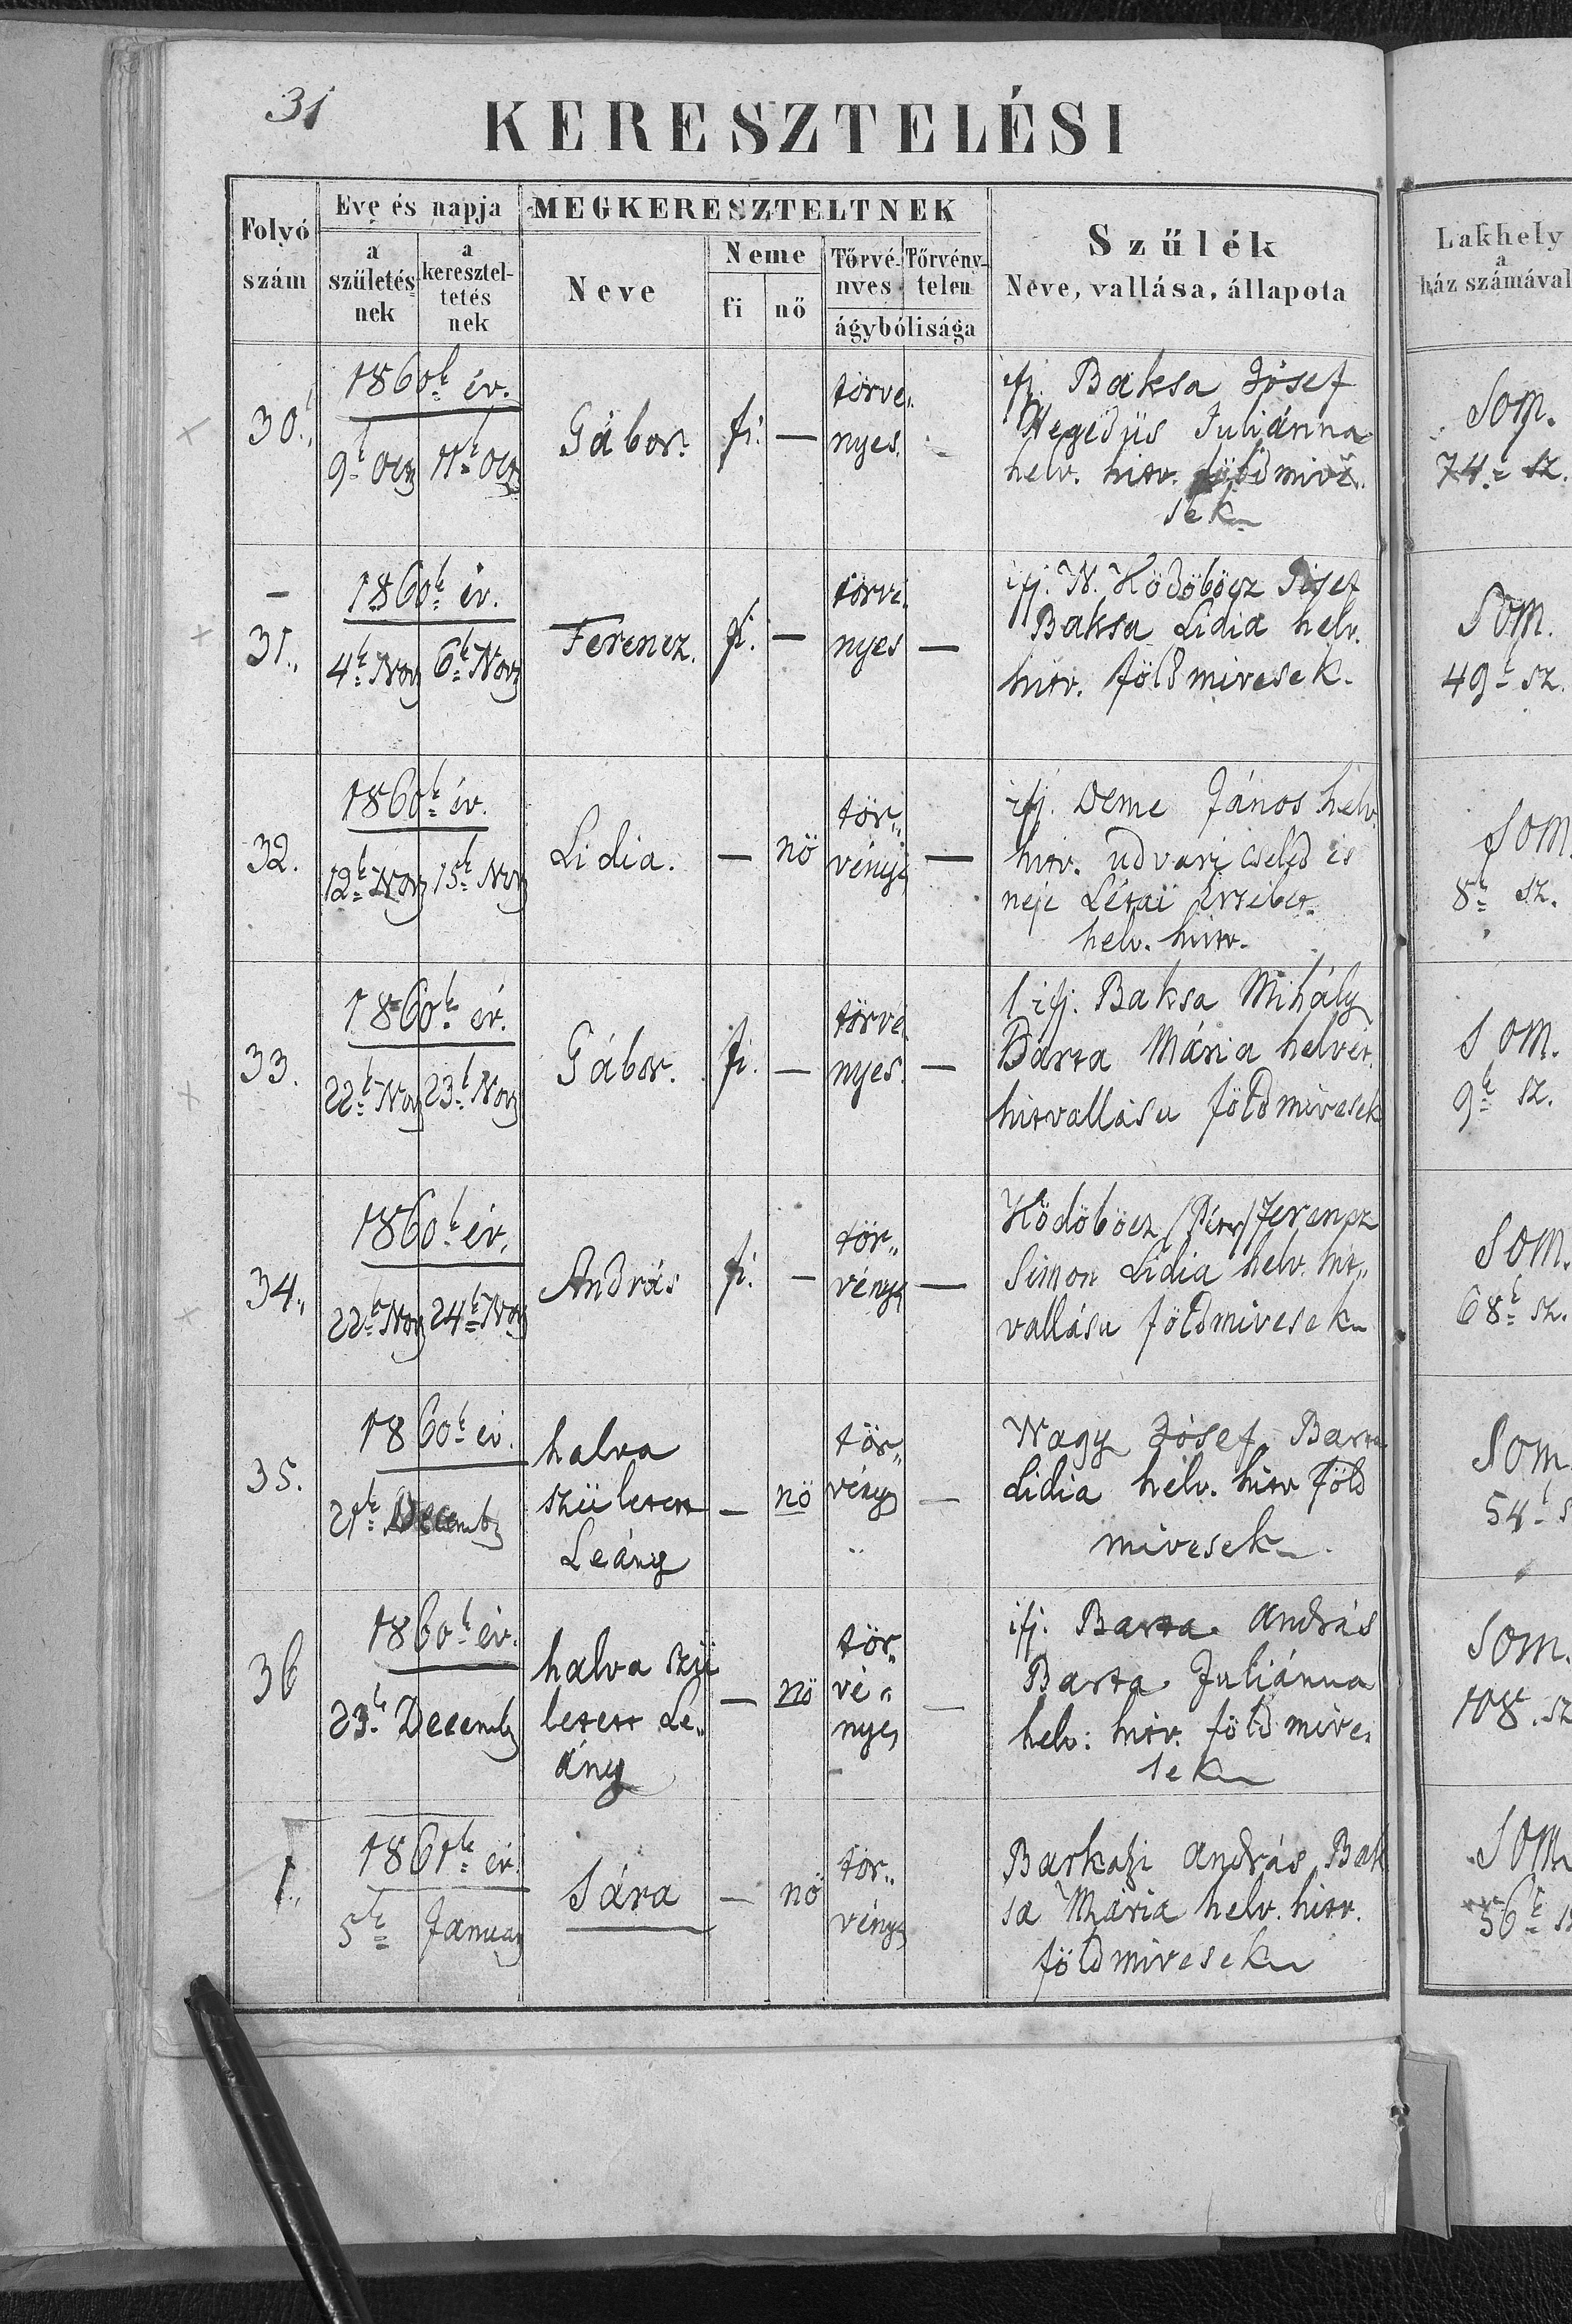 31
KERESZTELÉSI
Folyó szám
Eve és napja
a születés nek
a keresztel- tetés nek
MEGKERESZTELTNEK
Neve
Neme
fi
nő
Törvé- nyes
Törvény- telen
ágybólisága
Szűlék
Neve, vallása, állapota
Lakhely
a
ház számával
30.
1860k év.
9k Octz
11k Octz
Gábor.
fi.
—
törvé-
nyes.
ifj. Baksa Jósef
Hegedüs Juliánna
helv. hitv. földmivé-
sek
Som.
74.= sz.
31.,
1860k év.
4k Novz
6k Novz
Ferencz.
fi.
—
törvé-
nyes
—
ifj. N. Ködöböcz Jósef
Baksa Lidia helv.
hitv. földmivesek.
Som.
49k sz.
32.
1860k év.
12k Novz
15k Novz
Lidia.
—
nö
tör„
vénys
—
ifj. Deme János helv.
hitv. udvari cseléd és
neje Létai Ersébet.
helv. hitv.
Som.
8k sz.
33.
1860k év.
22k Novz
23k Novz
Gábor.
fi.
—
törvé
nyes.
—
ifj. Baksa Mihály
Barta Mária helvét.
hitvallásu földmivesek
Som.
9k sz.
34.,
1860k év.
22k Novz
24k Novz
András
fi.
—
tör„
vénys
—
Ködöböcz /Péter/ Ferencz
Simon Lidia helv. hit„
vallásu földmivesek
Som.
68k sz.
35.
1860k év.
21k Decembz
halva
született
Leány
—
nö
tör„
vénys
—
Nagy Jósef Barta
Lidia helv. hitv föld
mivesek
Som
54k s
36
1860k év.
23k Decembz
halva szü
letett Le„
ány
—
nö
tör„
vé„
nyes
—
ifj. Barta András
Barta Juliánna
helv: hitv. földmive-
sek
Som.
108. sz
1.,
1861k év.
5k Januaz
Sára
—
nö
tör„
vénys
Barkaszi András Bak
sa Mária helv. hitv.
földmivesek
Som
56k s